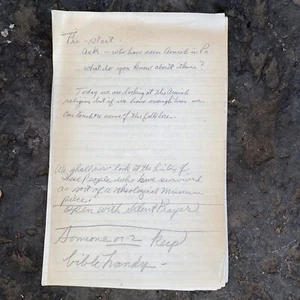 The - start.
Ask - who have seen Amish in Pa
what do you know about them?
Today we are looking at the Amish
religion but if we have enough time we
can touch on some of the folklore.
We shall now look at the history of
these people who have survived
as sort of a theological museum
piece.
Open with silent Prayer
Someone keep
bible handy -